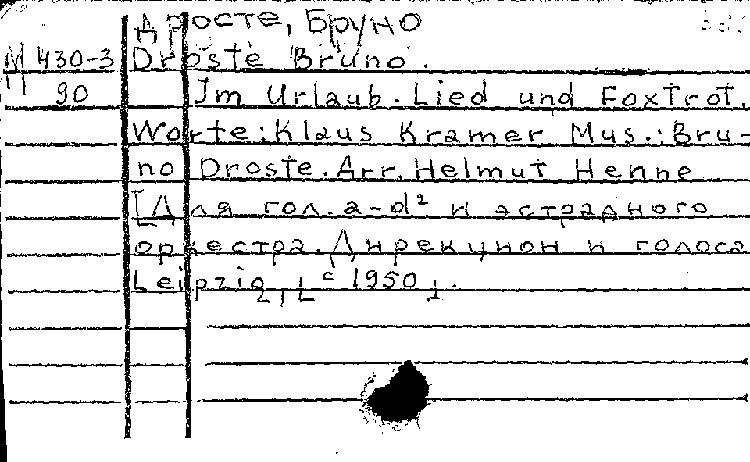 Дросте, Бруно
М 430-3 Droste Bruno.
П 90 Im Urlaub. Lied und Foxtrot.
Worte: Klaus Kramer Mus.: Bru-
no Droste. Arr. Helmut Henne
[Для гол. a-d² и эстрадного
оркестра. Дирекцион и голоса
Leipzig, [c 1950].